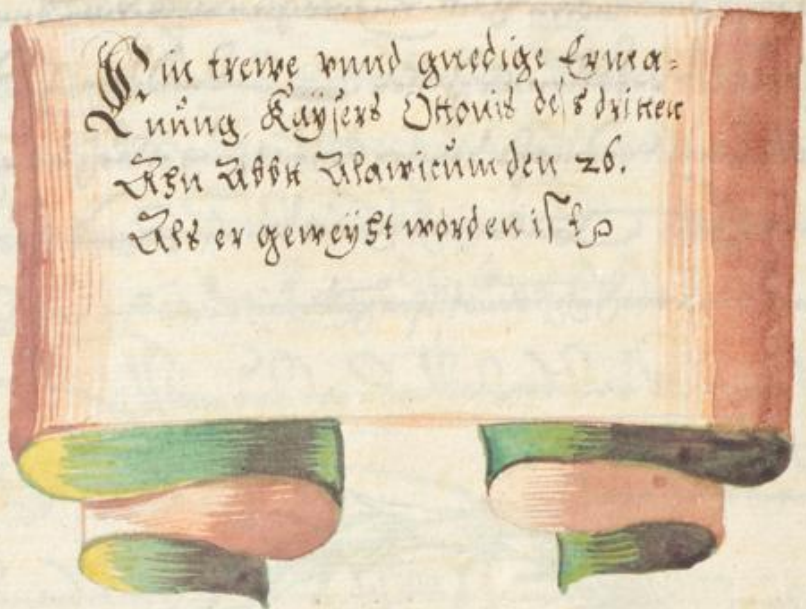 Ein trewe vnnd gnedige Erma=
nung Kaÿsers Ottonis dess dritten
Ahn Abbt Alawicum den 26.
Als er geweÿht worden ist